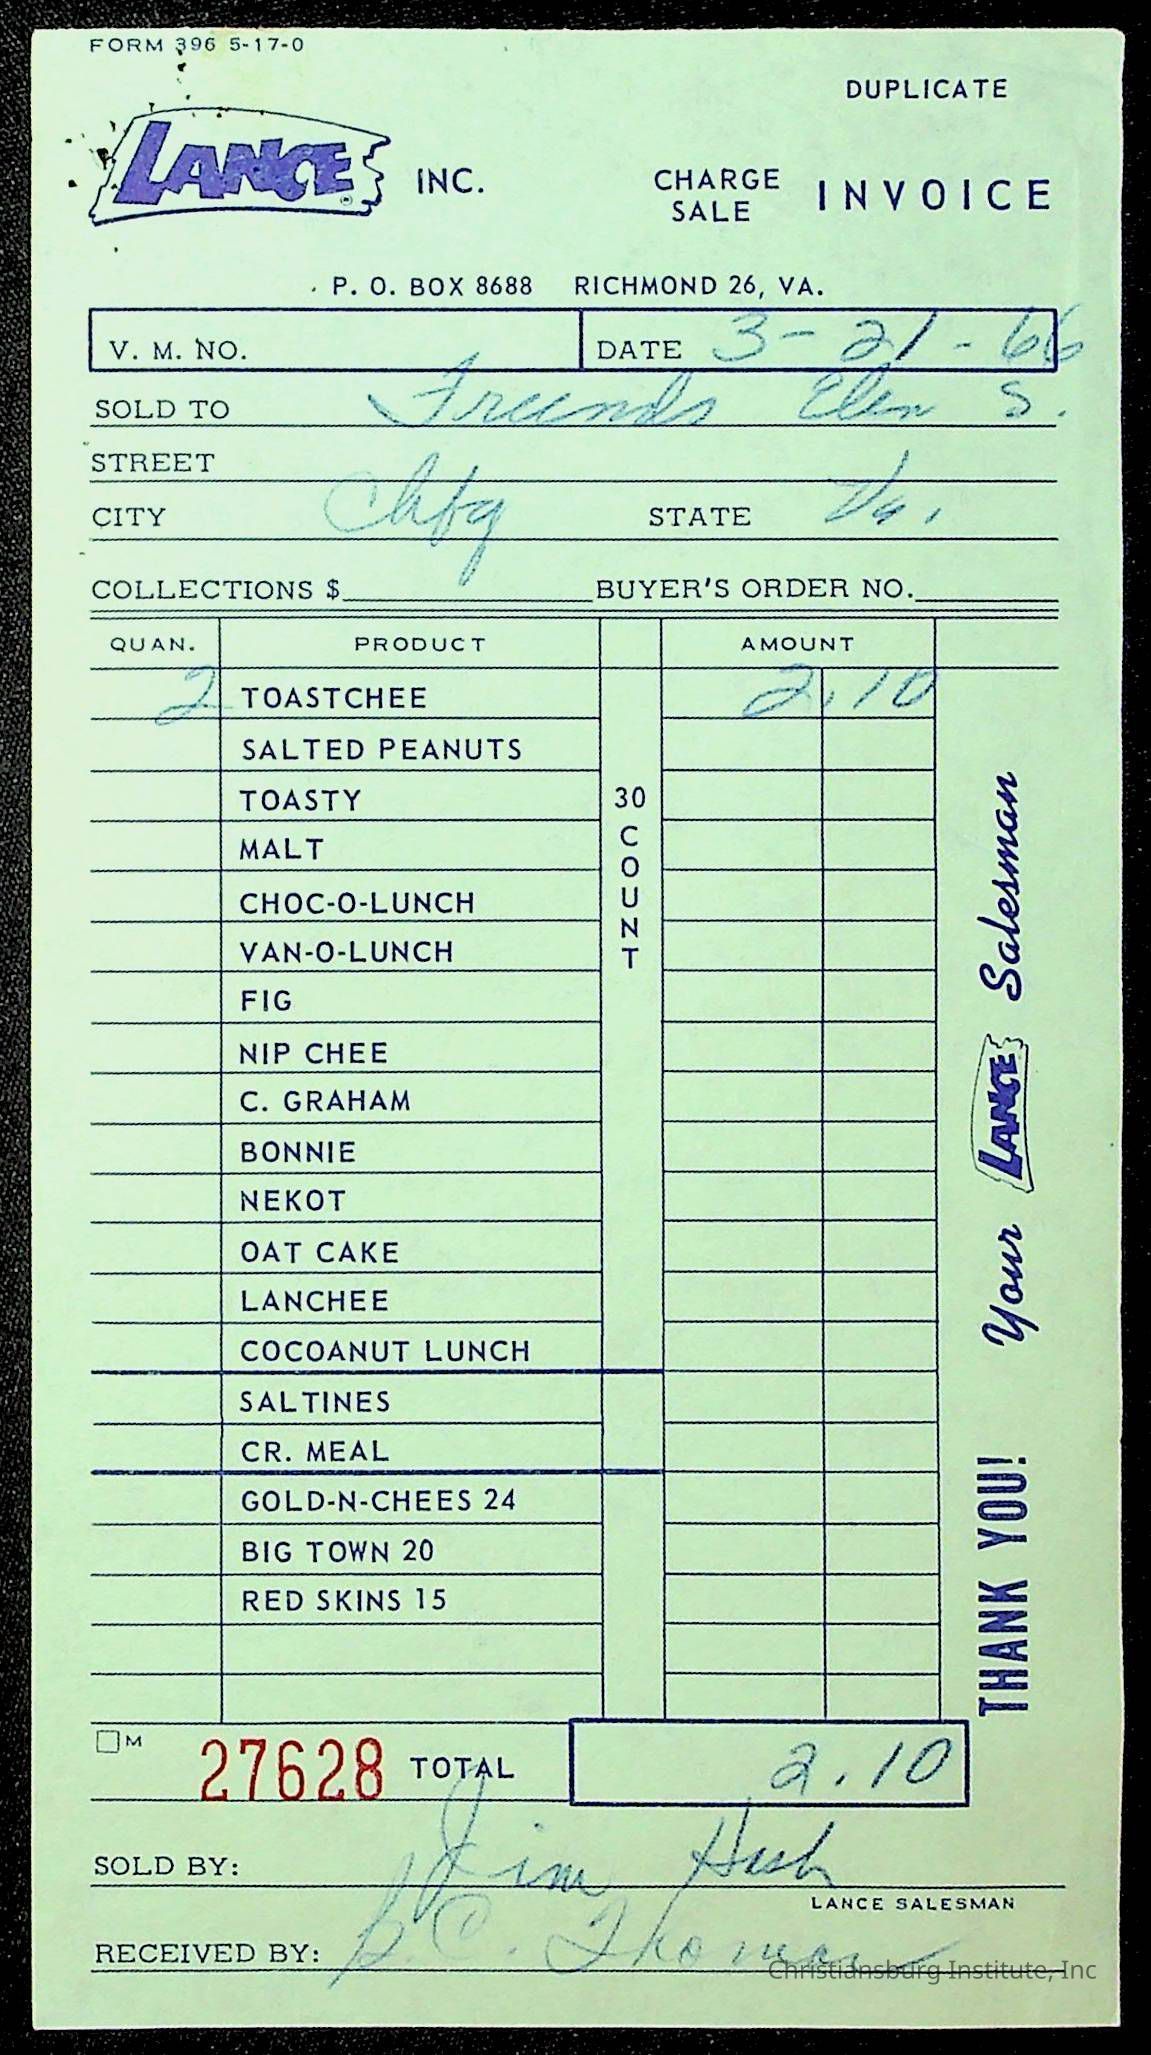 FORM 396 5-17-0
DUPLICATE
LANCE ® INC.
CHARGE SALE INVOICE
P. O. BOX 8688 RICHMOND 26, VA.
V. M. NO. DATE 3-21-66
SOLD TO Friends Elem S.
STREET
CITY Chbg STATE Va.
COLLECTIONS $ BUYER'S ORDER NO.
QUAN. PRODUCT AMOUNT
2 TOASTCHEE 2.10
SALTED PEANUTS
TOASTY
MALT
CHOC-O-LUNCH
VAN-O-LUNCH
FIG
NIP CHEE
C. GRAHAM
BONNIE
NEKOT
OAT CAKE
LANCHEE
COCOANUT LUNCH
30 COUNT
SALTINES
CR. MEAL
GOLD-N-CHEES 24
BIG TOWN 20
RED SKINS 15
THANK YOU! Your LANCE Salesman
M 27628 TOTAL 2.10
SOLD BY: Jim Hash
LANCE SALESMAN
RECEIVED BY: S.C. Thomas
Christiansburg Institute, Inc